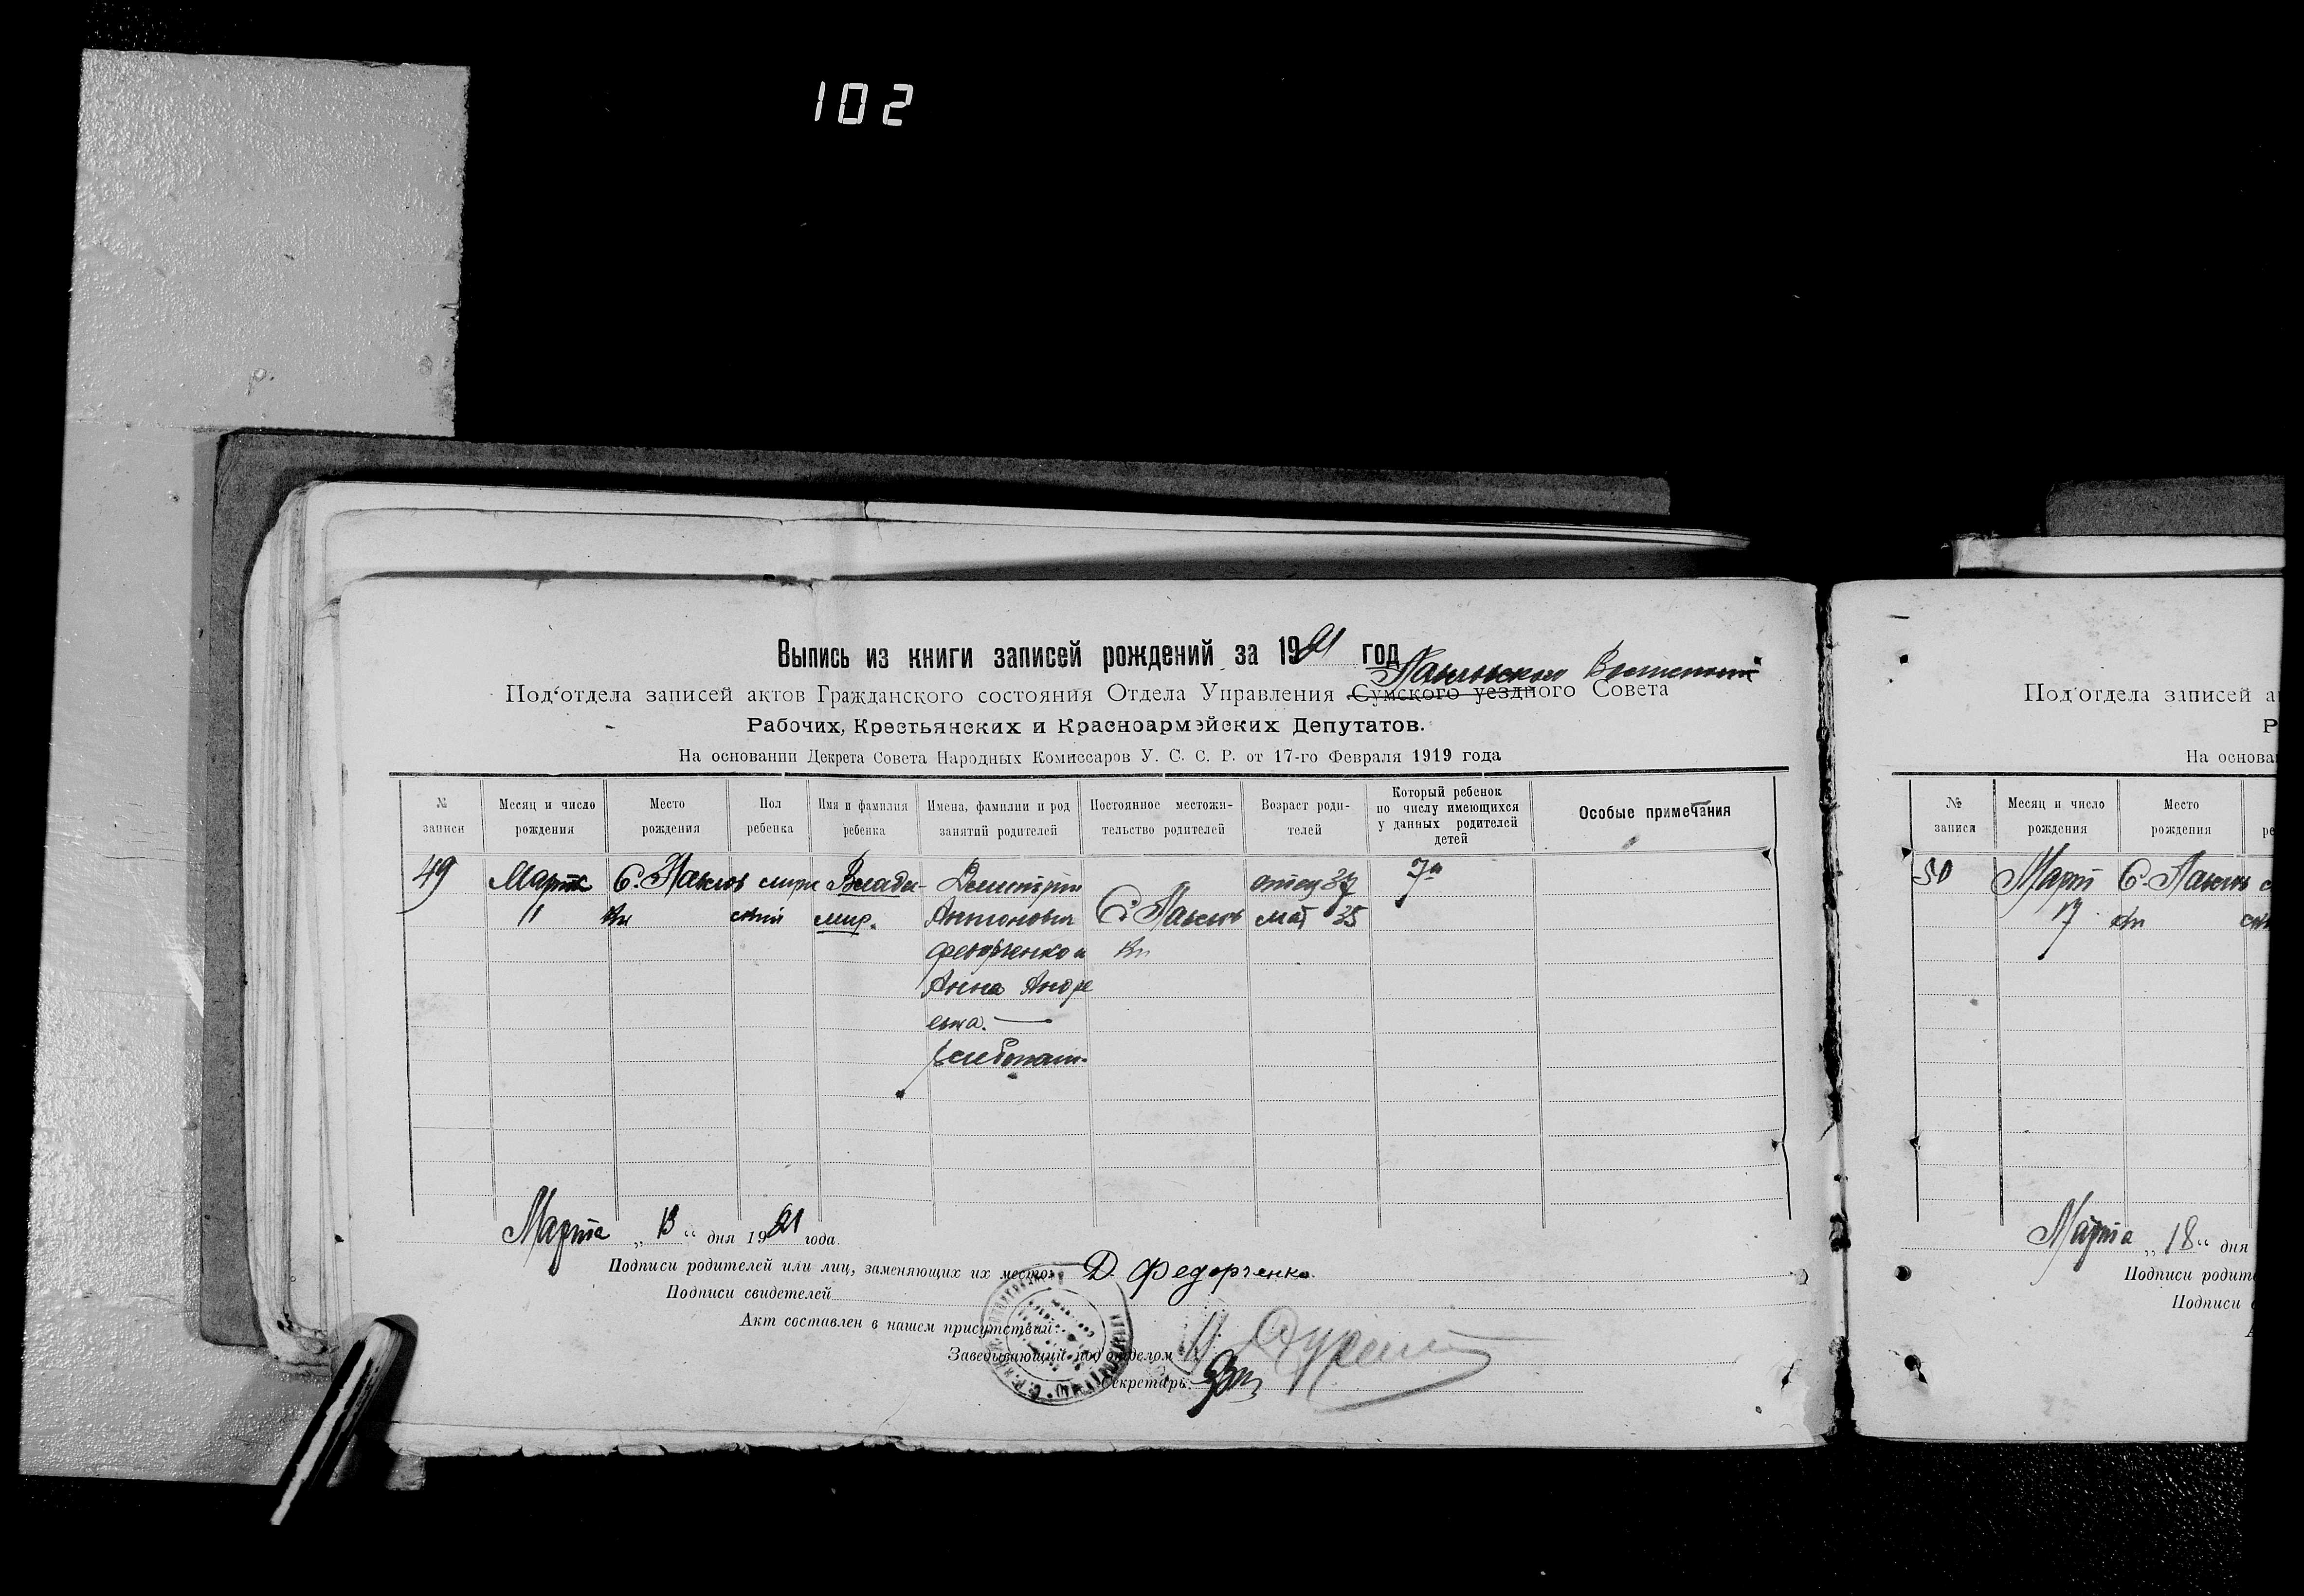 102
Выпись из книги записей рождений за 1921 год
Под‘отдела записей актов Гражданского состояния Отдела Управления Сумского уездного Совета
Рабочих, Крестьянских и Красноармэйских Депутатов.
На основании Декрета Совета Народных Комиссаров У. С. С. Р. от 17-го Февраля 1919 года
№ записи
Месяц и число рождения
Место рождения
Пол ребенка
Имя и фамилия ребенка
Имена, фамилии и род занятий родителей
Постоянное местожительство родителей
Возраст родителей
Который ребенок по числу имеющихся у данных родителей детей
Особые примечания
49
Март
11
С. Павлов
ки
Влади-
мир.
Димитрий
Антонович
Федорченко и
Анна Андре
евна.
хлебопаш.
С. Павлов
ки
отец 37
мат 35
7й
Марта „ 13 “ дня 1921 года.
Подписи родителей или лиц, заменяющих их место: Д. Федорченко.
Подписи свидетелей
Акт составлен в нашем присутствии:
Заведывающий под‘отделом
Секретарь:
Под‘отдела записей а
Р
На основа
№ записи
Месяц и число рождения
Место рождения
ре
50
Март
17
С. Павлов
ки
Марта „ 18 “ дня
Подписи родите
Подписи